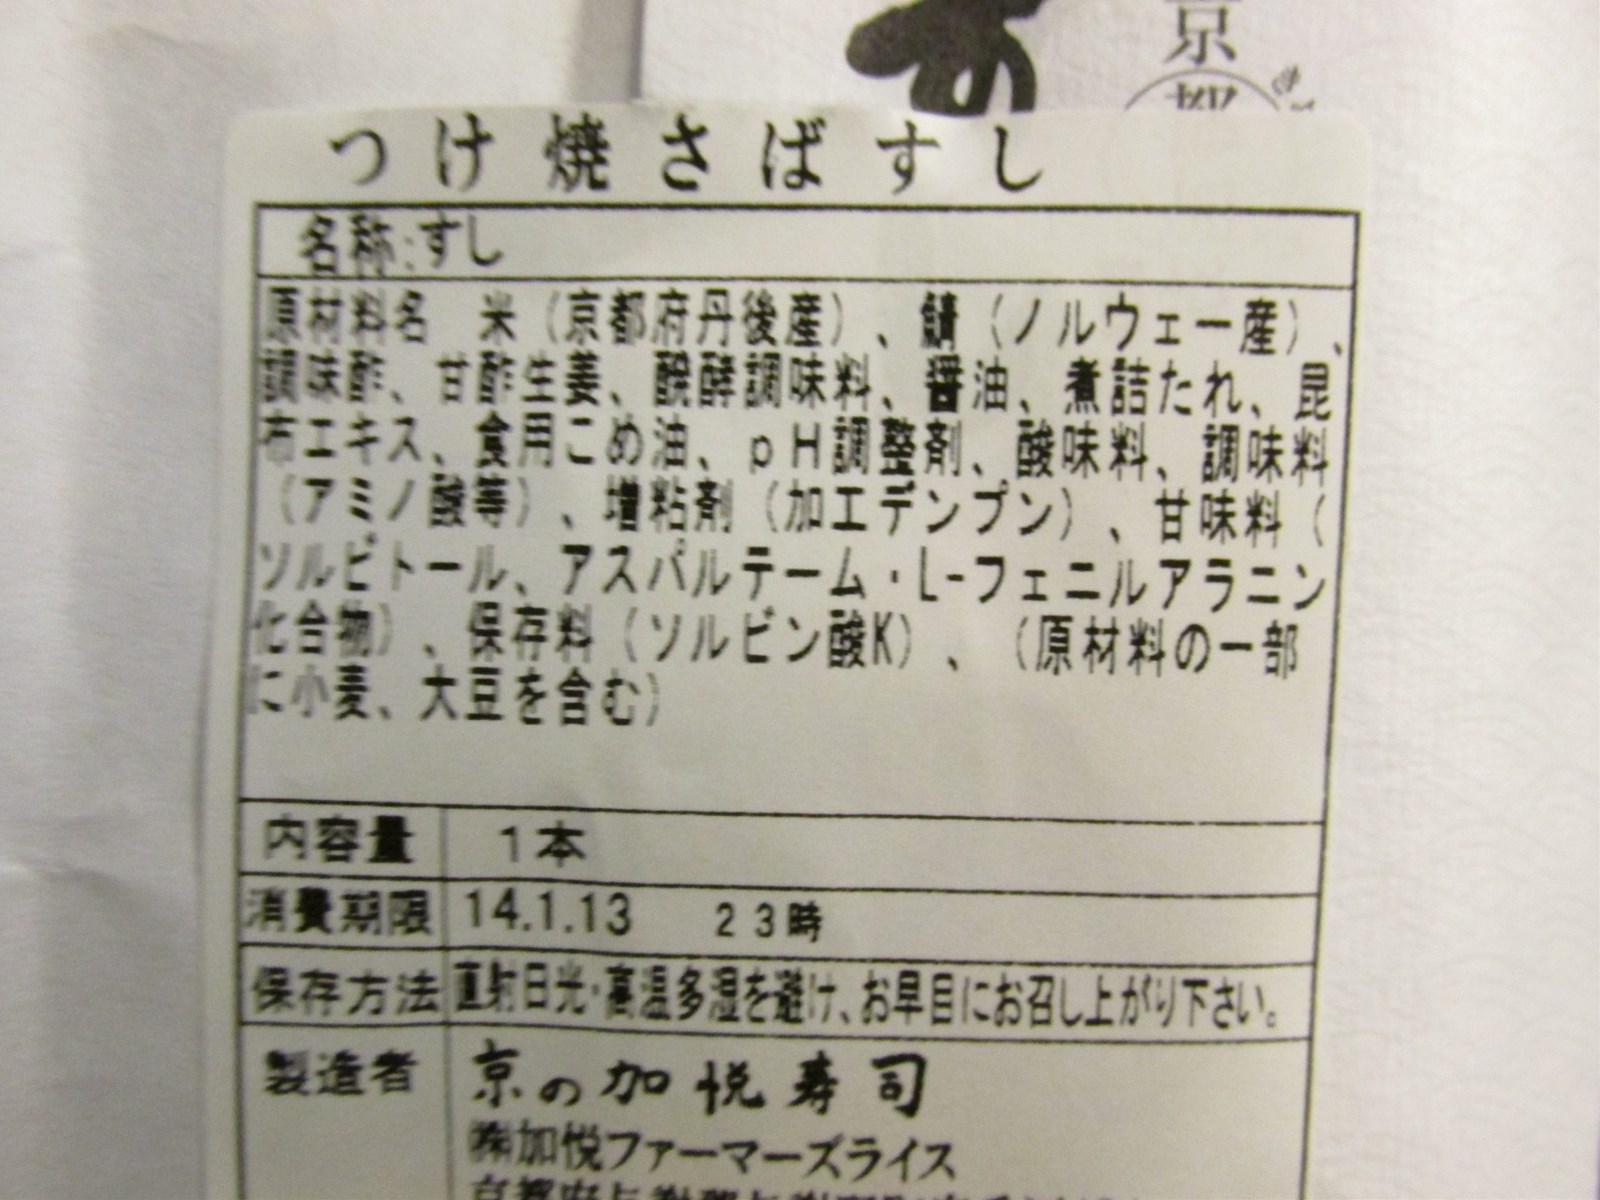 京
都
つけ焼さばすし
名称:すし
原材料名　米（京都府丹後産）、鯖（ノルウェー産）、
調味酢、甘酢生姜、醗酵調味料、醤油、煮詰たれ、昆
布エキス、食用こめ油、ｐＨ調整剤、酸味料、調味料
（アミノ酸等）、増粘剤（加工デンプン）、甘味料（
ソルビトール、アスパルテーム・L-フェニルアラニン
化合物）、保存料（ソルビン酸K）、（原材料の一部
に小麦、大豆を含む）
内容量　1本
消費期限　14.1.13　２３時
保存方法　直射日光・高温多湿を避け、お早目にお召し上がり下さい。
製造者　京の加悦寿司
㈱加悦ファーマーズライス